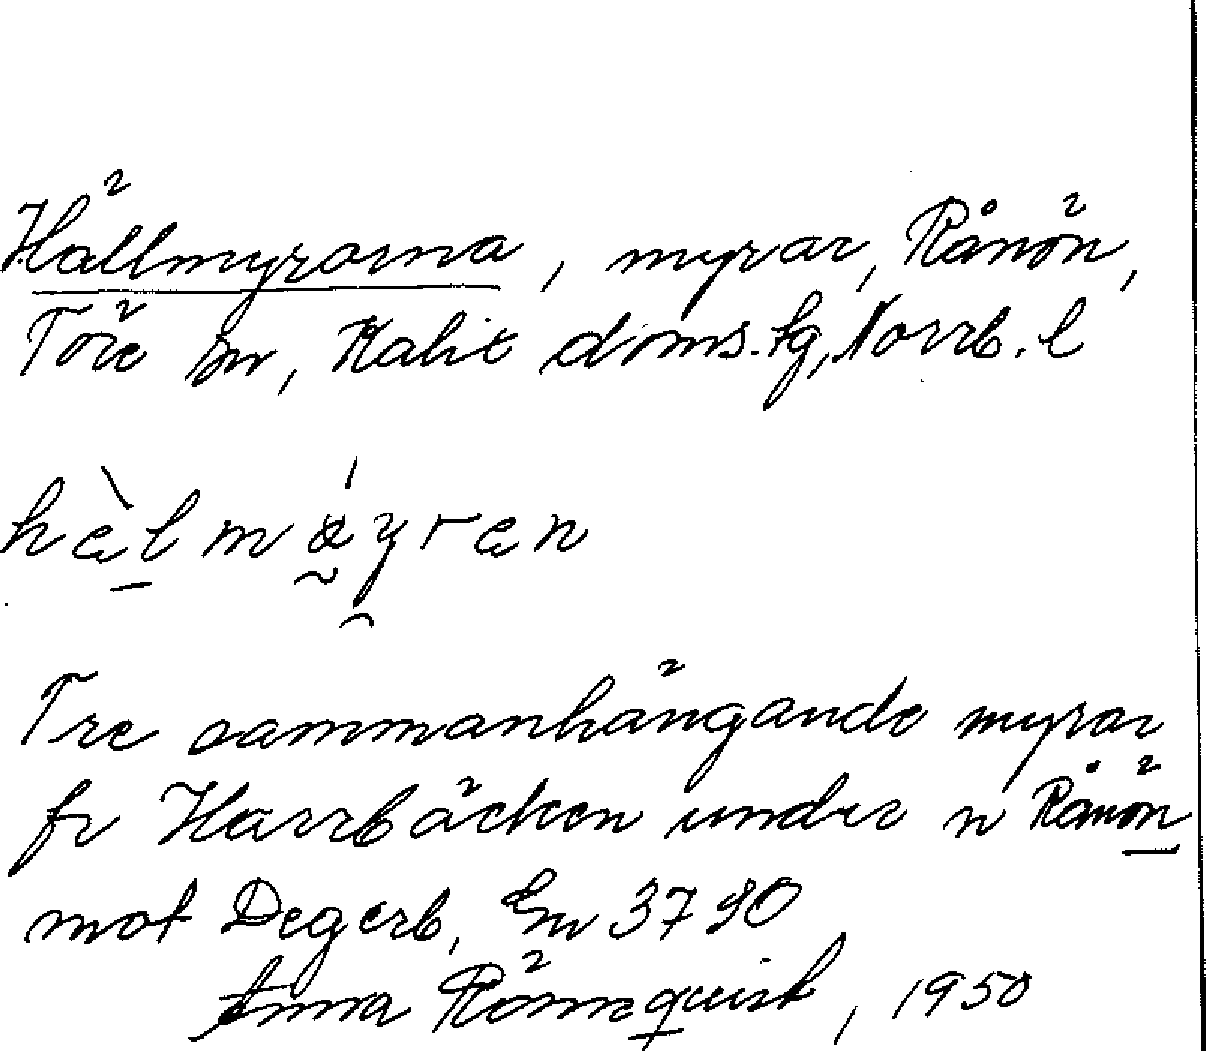 Hällmyrorna, myrar, Rånön,
Töre sn, Kalix doms.sg, Norrb. l
hælmøyræn
Tre sammanhängande myrar
fr Harrbäcken under n Rånön
mot Degerb, Sn 3790
Anna Rönnquist, 1950